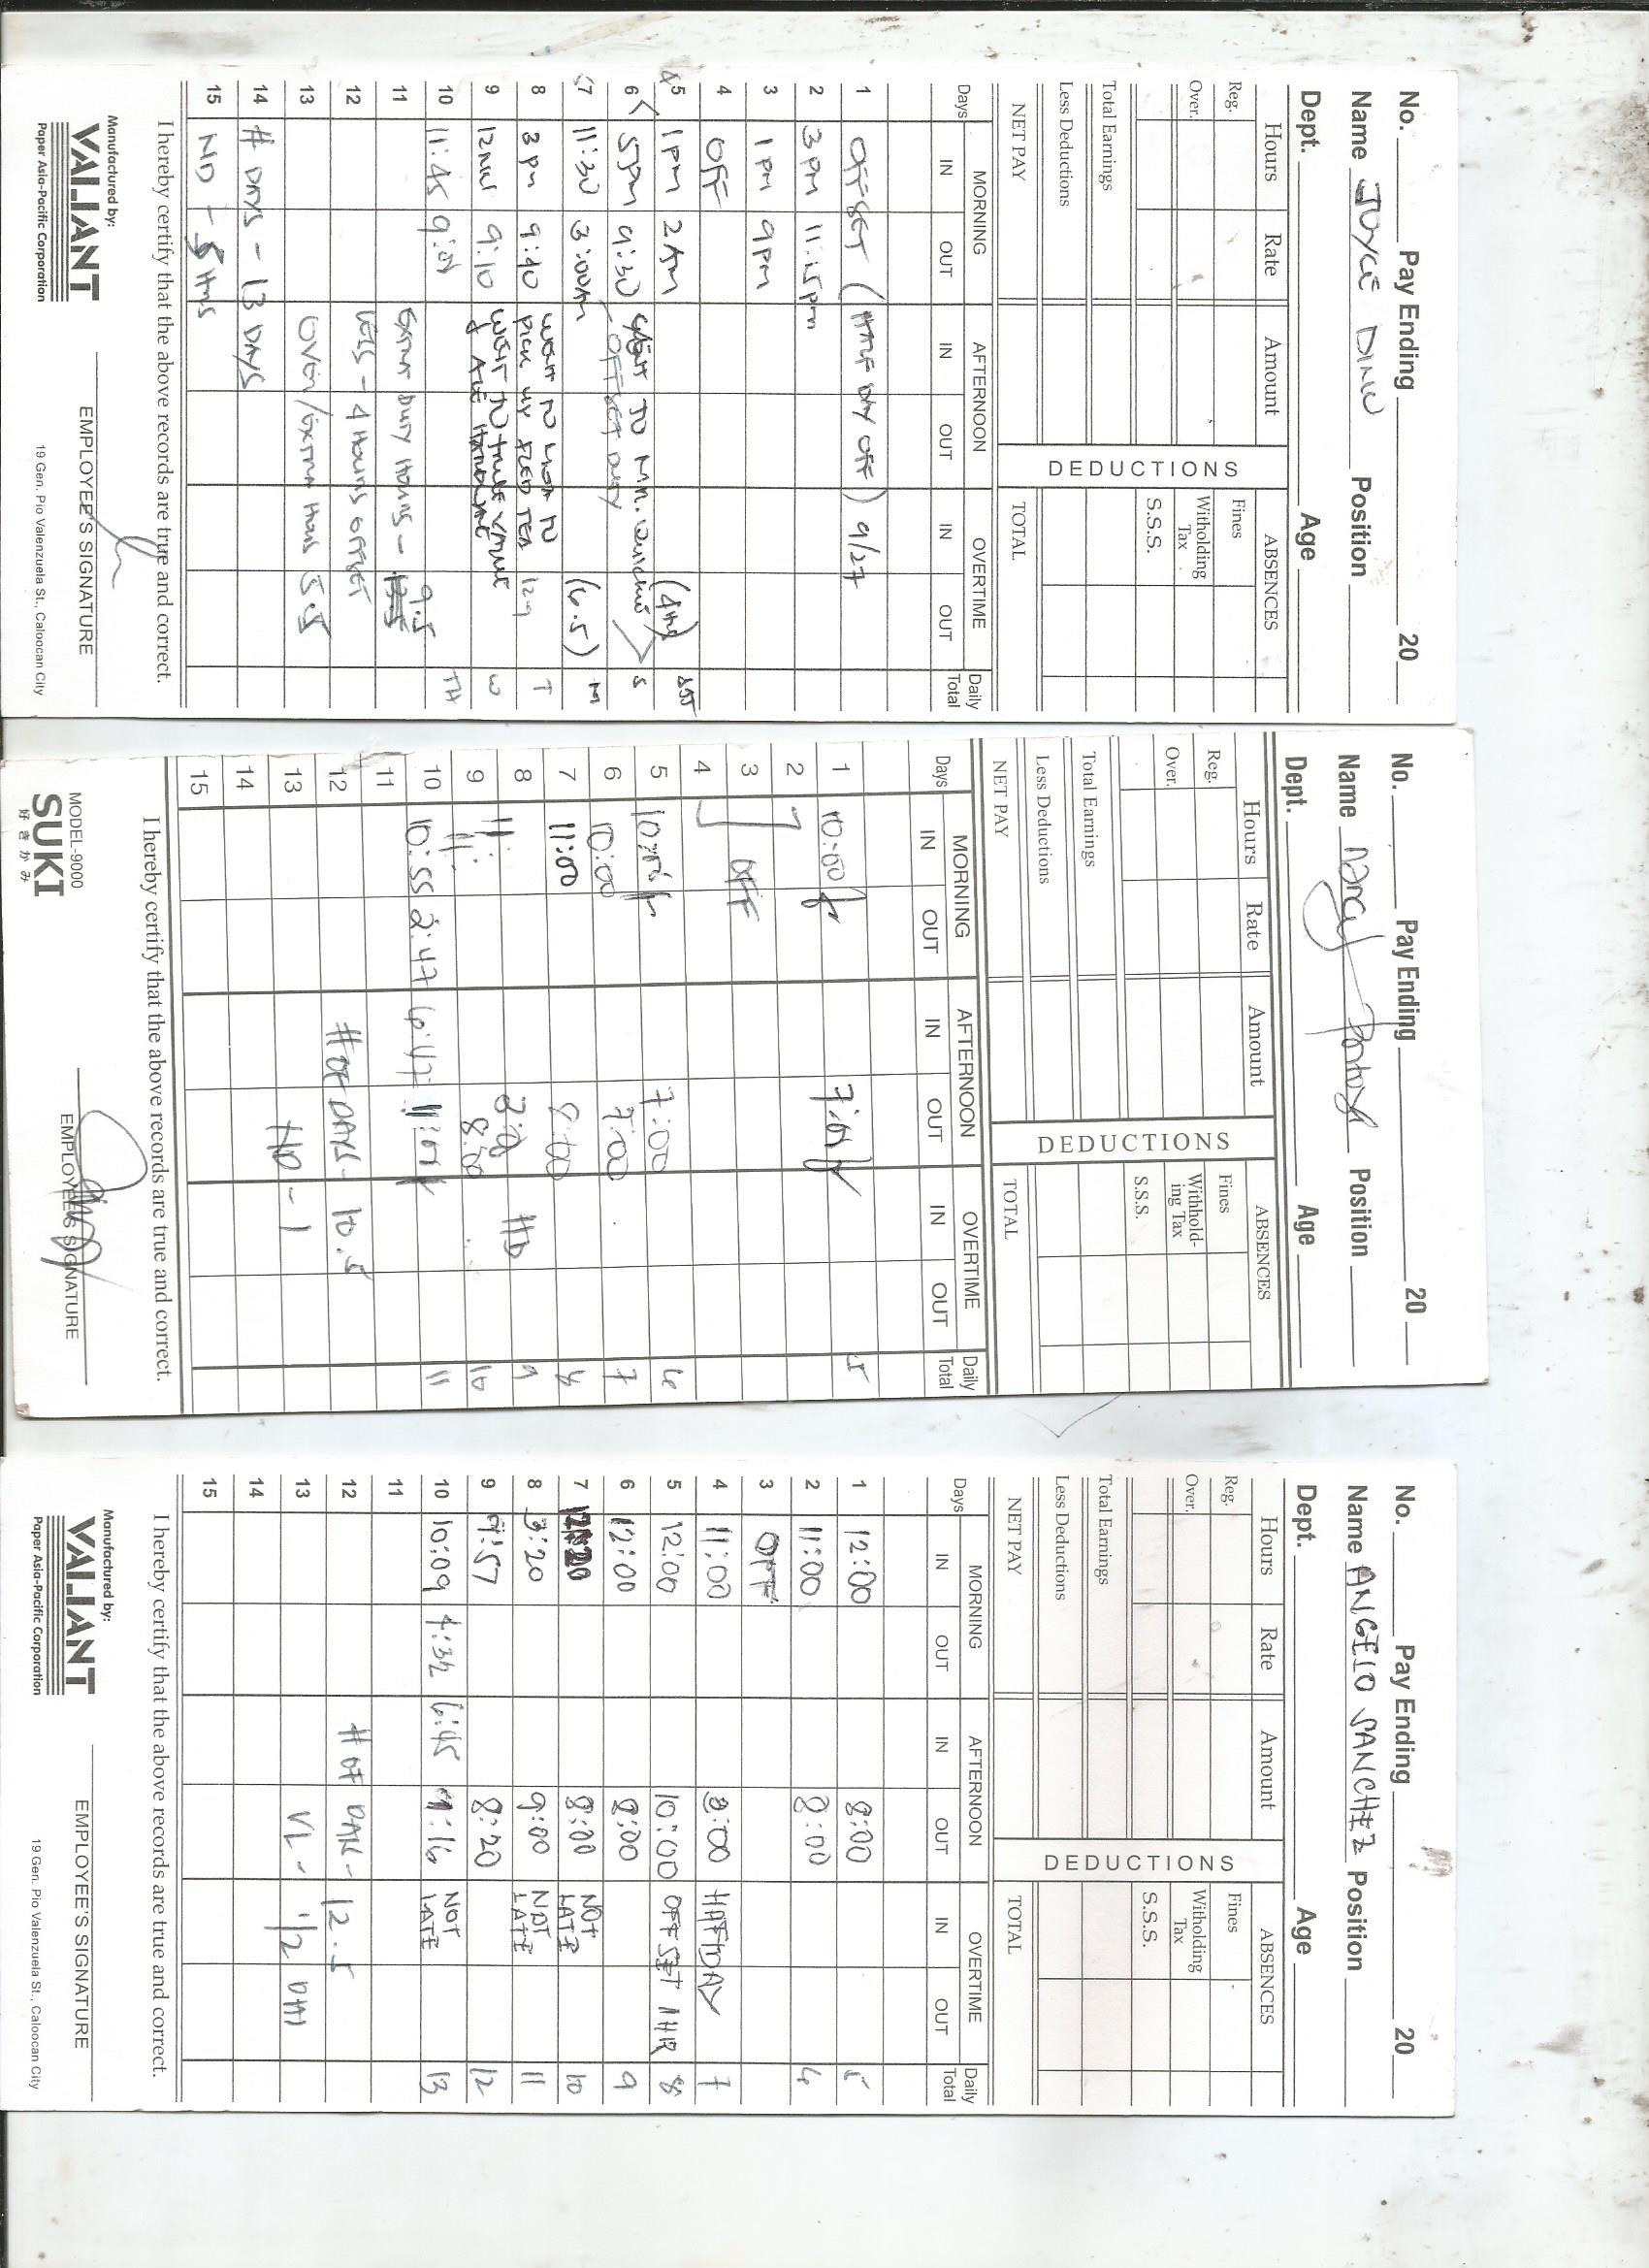 No. Pay Ending 20
Name JOYCE Position
Dept. Age
Hours Rate Amount DEDUCTIONS ABSENCES
Reg. Fines
Over. Withholding Tax
S.S.S.
Total Earnings
Less Deductions
NET PAY TOTAL
Days MORNING AFTERNOON OVERTIME Daily Total
IN OUT IN OUT IN OUT
1 OFFSET (HALF DAY OFF) 9/27
2 3PM 11:15pm
3 1PM 9PM
4 OFF
5 1PM 2AM (4HRS) SAT
6 5PM 9:30 WENT TO MR. S
OFFSET DUTY
7 11:30 3:00AM (6.5) M
8 3PM 9:40 WENT TO TO T
PICK UP
9 12NN 9:10 WENT TO W
10 11:45 9:01 TH
11 EXTRA DUTY HOURS - 9.5
12 LESS - 4 HOURS OFFSET
13 OVER/EXTRA HOURS 5.5
14 # DAYS - 13 DAYS
15 ND - 5 HRS
I hereby certify that the above records are true and correct.
Manufactured by:
VALIANT
Paper Asia-Pacific Corporation
EMPLOYEE'S SIGNATURE
19 Gen. Pio Valenzuela St., Caloocan City
No. Pay Ending 20
Name Position
Dept. Age
Hours Rate Amount DEDUCTIONS ABSENCES
Reg. Fines
Over. Withhold-ing Tax
S.S.S.
Total Earnings
Less Deductions
NET PAY TOTAL
Days MORNING AFTERNOON OVERTIME Daily Total
IN OUT IN OUT IN OUT
1 10:00 5
2
3 OFF
4
5 7:00 6
6 10:00 7:00 7
7 11:00 8:00 8
8 HD 9
9 11: 8:00 10
10 10:55 2:47 6:47 11:01 11
11
12 # OF DAYS - 10.5
13 HD - 1
14
15
I hereby certify that the above records are true and correct.
MODEL-9000
SUKI
好きかみ
EMPLOYEE'S SIGNATURE
No. Pay Ending 20
Name ANGELO SANCHEZ Position
Dept. Age
Hours Rate Amount DEDUCTIONS ABSENCES
Reg. Fines
Over. Withholding Tax
S.S.S.
Total Earnings
Less Deductions
NET PAY TOTAL
Days MORNING AFTERNOON OVERTIME Daily Total
IN OUT IN OUT IN OUT
1 12:00 8:00 5
2 11:00 8:00 6
3 OFF
4 11:00 3:00 HAFTDAY 7
5 12:00 10:00 OFFSET 1HR 8
6 12:00 8:00 9
7 8:00 NOT LATE 10
8 3:20 9:00 NOT LATE 11
9 8:20 12
10 10:09 4:32 6:45 9:16 NOT LATE 13
11
12 # OF DAYS - 12.5
13 VL - 1/2 DAY
14
15
I hereby certify that the above records are true and correct.
Manufactured by:
VALIANT
Paper Asia-Pacific Corporation
EMPLOYEE'S SIGNATURE
19 Gen. Pio Valenzuela St., Caloocan City